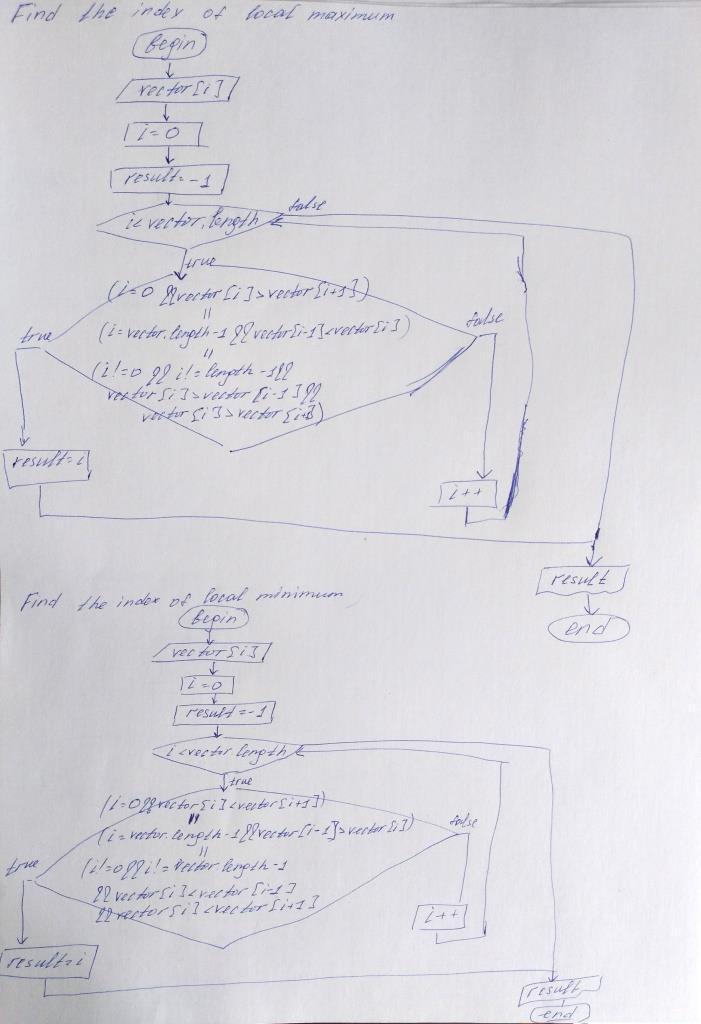 Find the index of local maximum
begin
vector[i]
i=0
result=-1
i<vector.length
false
true
(i=0 && vector[i]>vector[i+1])
||
(i=vector.length-1 && vector[i-1]<vector[i])
||
(i!=0 && i!=length-1 &&
vector[i]>vector[i-1] &&
vector[i]>vector[i+1])
true
false
result=i
i++
result
end
Find the index of local minimum
begin
vector[i]
i=0
result=-1
i<vector.length
true
(i=0 && vector[i]<vector[i+1])
||
(i=vector.length-1 && vector[i-1]>vector[i])
||
(i!=0 && i!=vector.length-1
&& vector[i]<vector[i-1]
&& vector[i]<vector[i+1])
true
false
i++
result=i
result
end